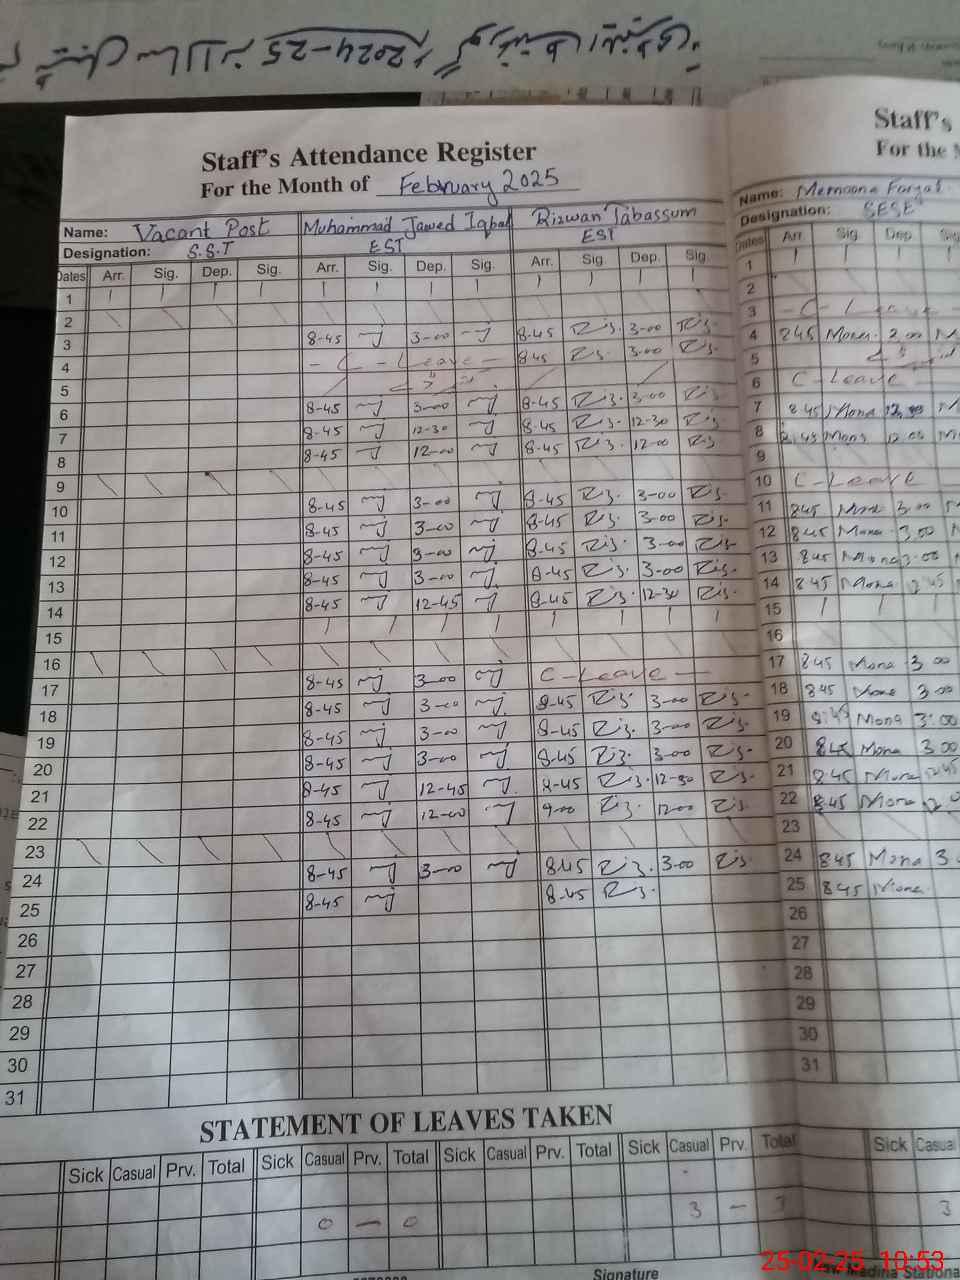 2024-25
Staff's Attendance Register
For the Month of February 2025
Name: Vacant Post Muhammad Jawed Iqbal Rizwan Tabassum
Designation: S.S.T EST EST
Dates Arr. Sig. Dep. Sig. Arr. Sig. Dep. Sig. Arr. Sig. Dep. Sig.
1
2
3 8-45 3-00 8-45 Riz. 3-00 Riz.
4 - C - Leave - 8-45 Riz. 3-00 Riz.
5
6 8-45 3-00 8-45 Riz. 3-00 Riz.
7 8-45 12-30 8-45 Riz. 12-30 Riz.
8 8-45 12-00 8-45 Riz. 12-00 Riz.
9
10 8-45 3-00 8-45 Riz. 3-00 Riz.
11 8-45 3-00 8-45 Riz. 3-00 Riz.
12 8-45 3-00 8-45 Riz. 3-00 Riz.
13 8-45 3-00 8-45 Riz. 3-00 Riz.
14 8-45 12-45 8-45 Riz. 12-30 Riz.
15
16
17 8-45 3-00 C-Leave
18 8-45 3-00 8-45 Riz. 3-00 Riz.
19 8-45 3-00 8-45 Riz. 3-00 Riz.
20 8-45 3-00 8-45 Riz. 3-00 Riz.
21 8-45 12-45 8-45 Riz. 12-30 Riz.
22 8-45 12-00 9-00 Riz. 12-00 Riz.
23
24 8-45 3-00 8-45 Riz. 3-00 Riz.
25 8-45 8-45 Riz.
26
27
28
29
30
31
STATEMENT OF LEAVES TAKEN
Sick Casual Prv. Total Sick Casual Prv. Total Sick Casual Prv. Total Sick Casual Prv. Total
0 - 0 3 -
Signature
Staff's
For the
Name: Memoona
Designation: SESE
Dates Arr. Sig. Dep.
1
2
3 - C - Leave
4 845 Mona 2.00
5
6 C-Leave
7 8.45 Mona
8 8.45 Mona 12.00
9
10 C-Leave
11 845 Mona 3.00
12 845 Mona 3.00
13 845 Mona 3.00
14 845 Mona
15
16
17 845 Mona 3.00
18 845 Mona 3.00
19 8:45 Mona 3:00
20 845 Mona 3.00
21 8.45 Mona
22 8.45 Mona
23
24 845 Mona
25 845 Mona
26
27
28
29
30
31
Sick Casual
3
25-02-25 10:53